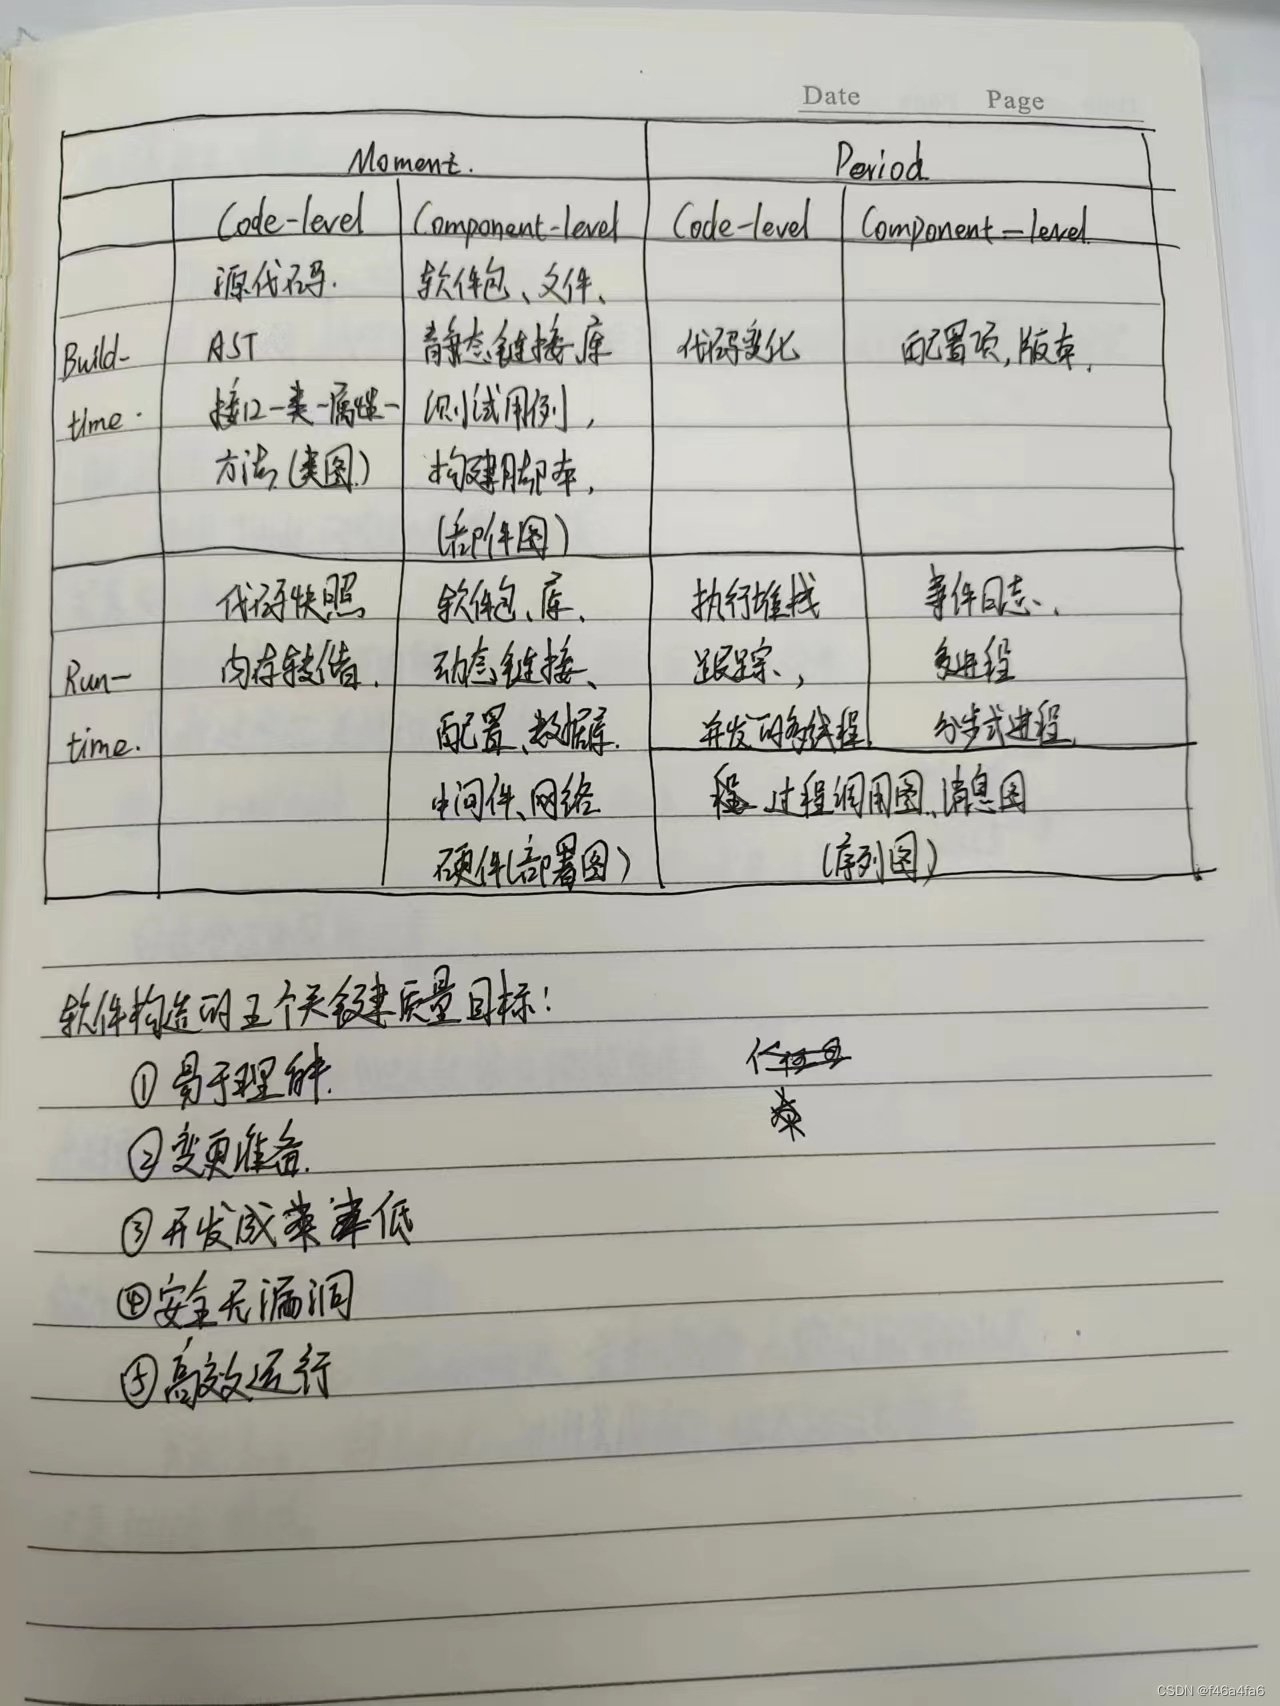 Date Page
Moment. Period
Code-level Component-level Code-level Component-level
源代码. 软件包、文件、
Build- AST 静态链接库 代码变化 配置项,版本,
time. 接口-类-属性- 测试用例,
方法(类图) 构建脚本,
(部件图)
代码快照 软件包、库、 执行堆栈 事件日志、
Run- 内存转储. 动态链接、 跟踪、, 多进程
time. 配置、数据库. 并发的多线程. 分步式进程.
中间件、网络 过程调用图、消息图
硬件(部署图) (序列图)
软件构造的五个关键质量目标:
①易于理解.
②变更准备.
③开发成 低
④安全无漏洞
⑤高效运行
CSDN @f46a4fa6